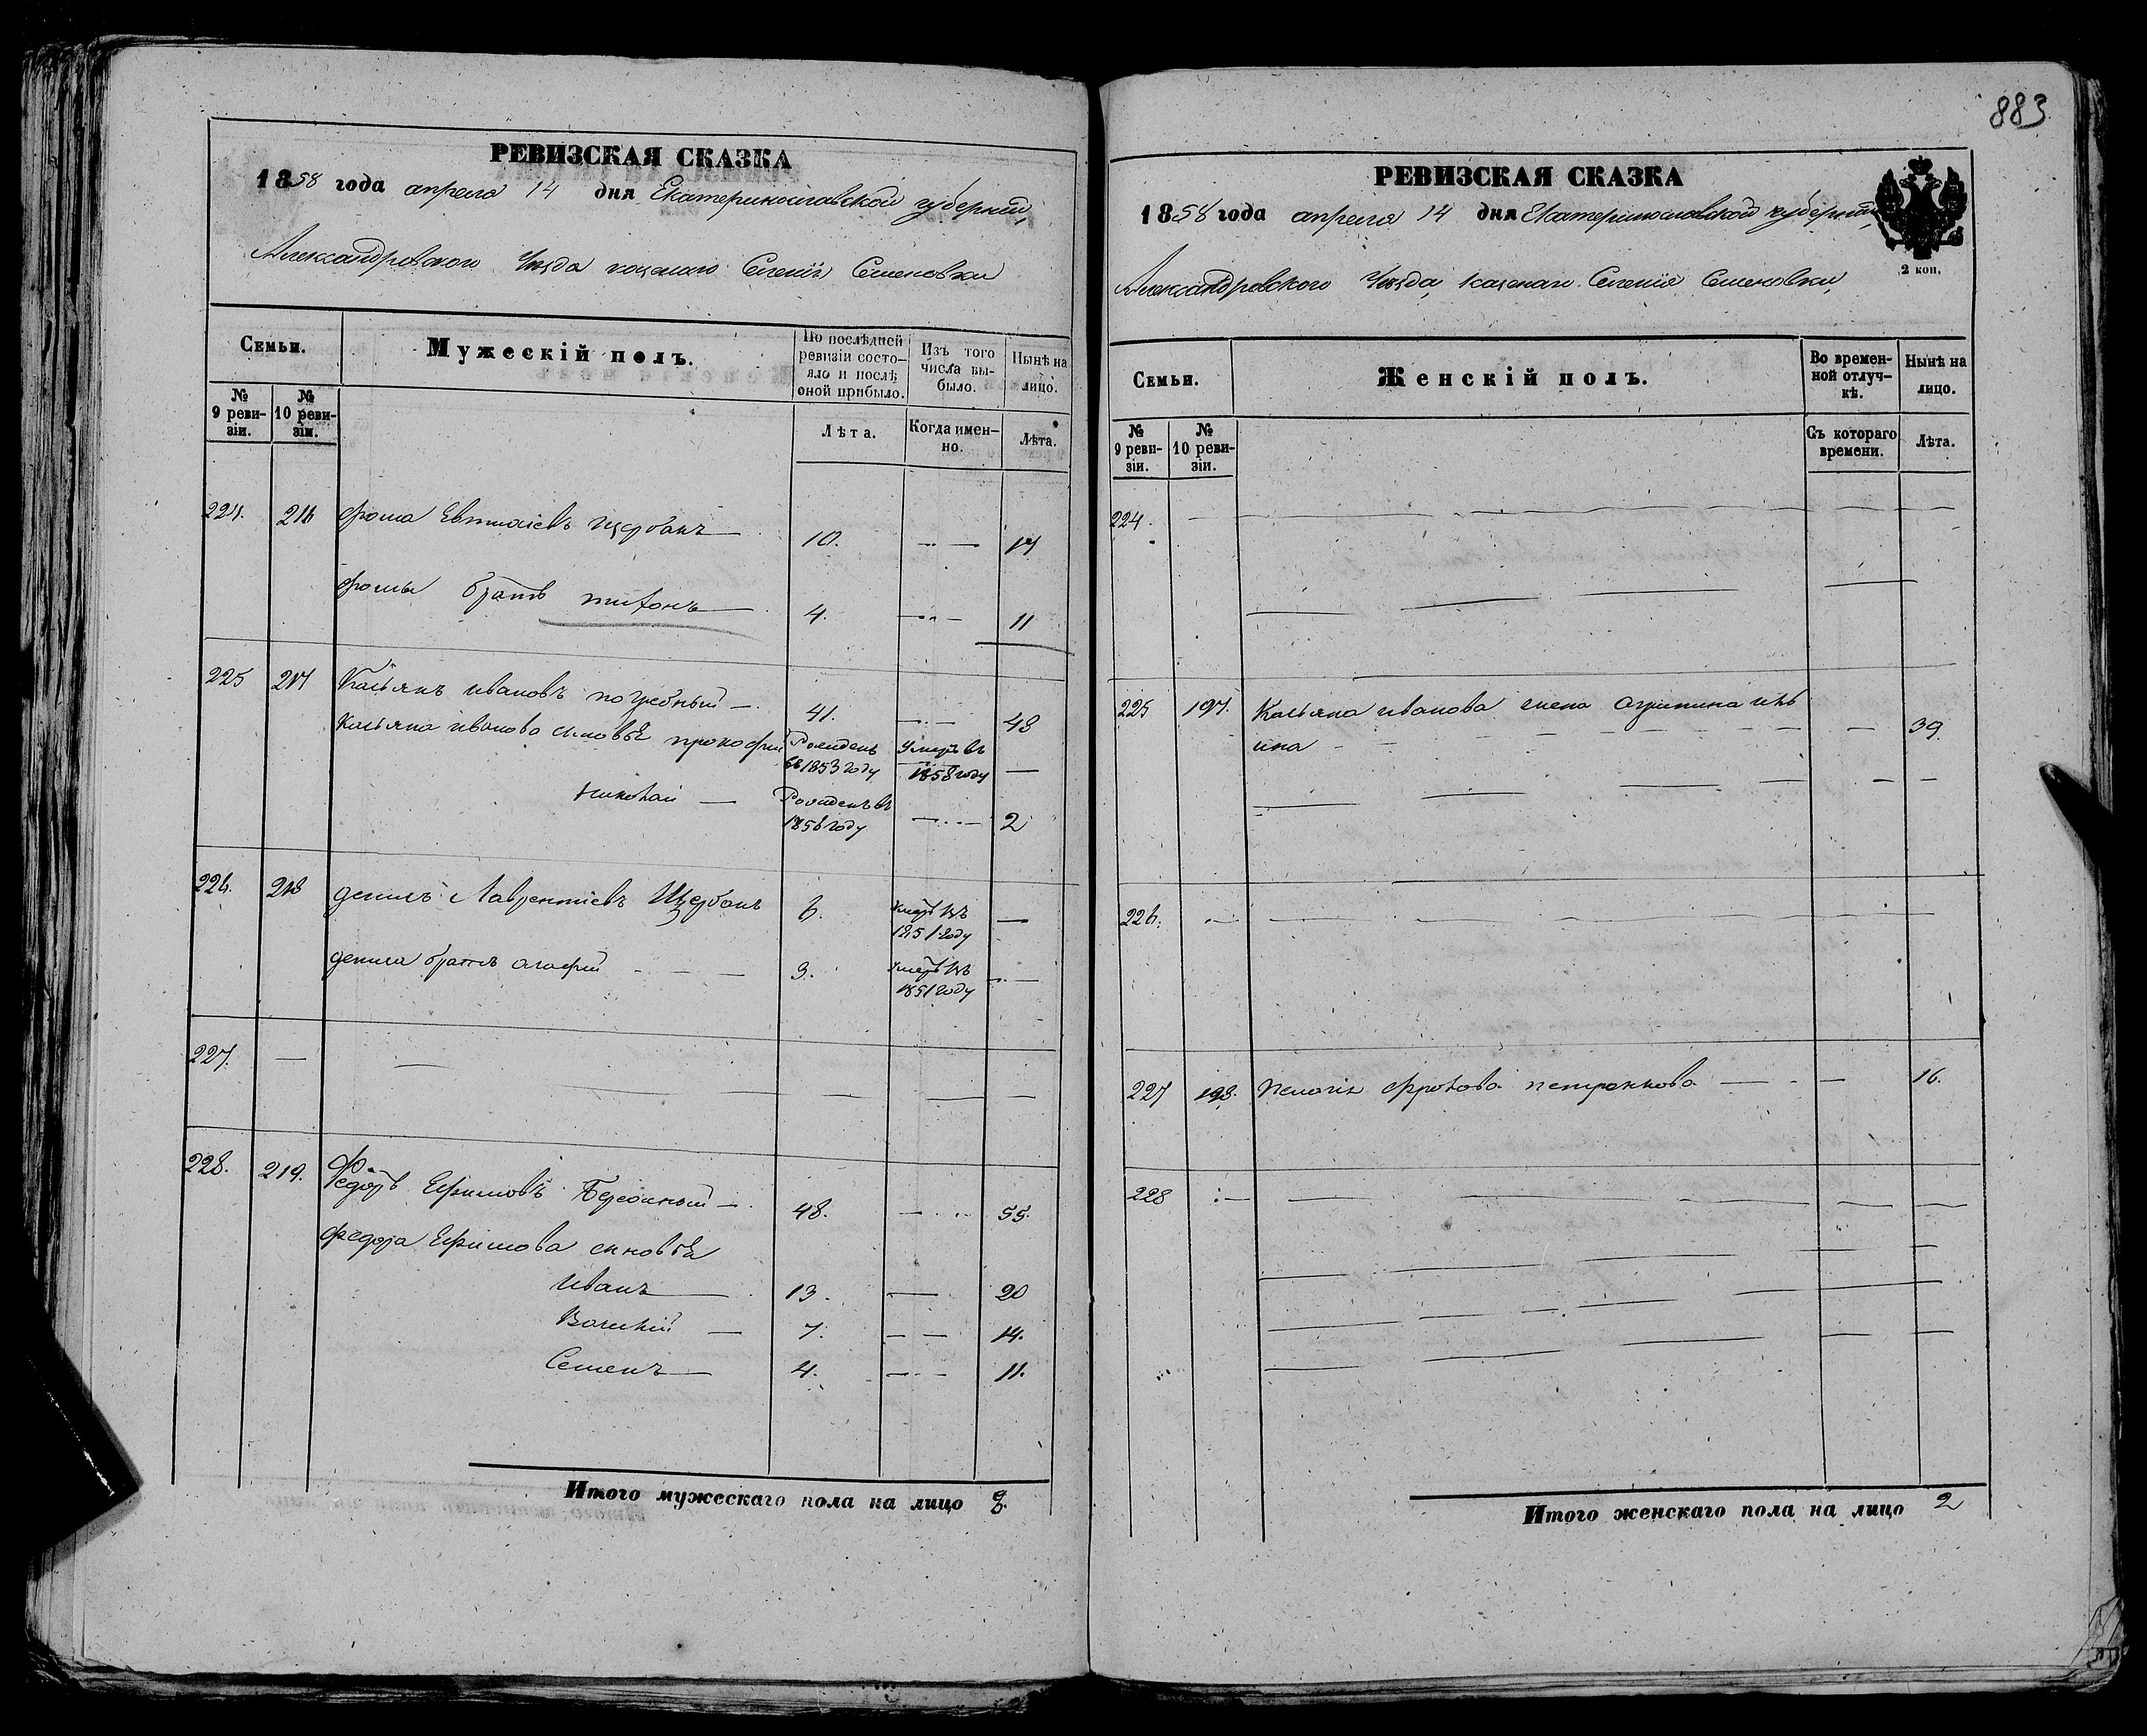 883
РЕВИЗСКАЯ СКАЗКА
1858 года апреля 14 дня Екатеринославской губерніи,
Александровского Уезда казенаго Селенія Семеновки
Семьи.
Мужескій полъ.
По послѣдней ревизіи состо-
яло и послѣ оной прибыло.
Изъ того числа вы-
было.
Нынѣ на лицо.
№ 9 реви-
зіи.
№ 10 реви-
зіи.
Лѣта.
Когда имен-
но.
Лѣта.
224. 216 фома Евтиѳіевъ Щербань 10. 17
фомы братъ тихонъ 4. 11
225 217 Касьянъ ивановъ погребный 41. 48
Касьяна иванова сыновья прокофій Рожденъ въ 1853 году Умеръ въ 1858 году
николай Рожденъ въ 1856 году 2
226. 218 денисъ Лаврентіевъ Щербань 6. Умеръ въ 1851 году
дениса братъ агафій 3. Умеръ въ 1851 году
227.
228. 219. Федоръ Ефимовъ 48. 55.
федора Ефимова сыновья
иванъ 13. 20
Василій 7. 14.
Семенъ 4. 11.
Итого мужескаго пола на лицо 8.
РЕВИЗСКАЯ СКАЗКА
1858 года апреля 14 дня Екатеринославской губерніи,
Александровского Уезда, казенаго Селенія Семеновки,
2 коп.
Семьи.
Женскій полъ.
Во времен-
ной отлуч-
кѣ.
Нынѣ на лицо.
№ 9 реви-
зіи.
№ 10 реви-
зіи.
Съ котораго времени.
Лѣта.
224.
225 197. Касьяна иванова жена агрипина иль
ина 39.
226.
227 198. Пелагія фролова петренкова 16.
228
Итого женскаго пола на лицо 2